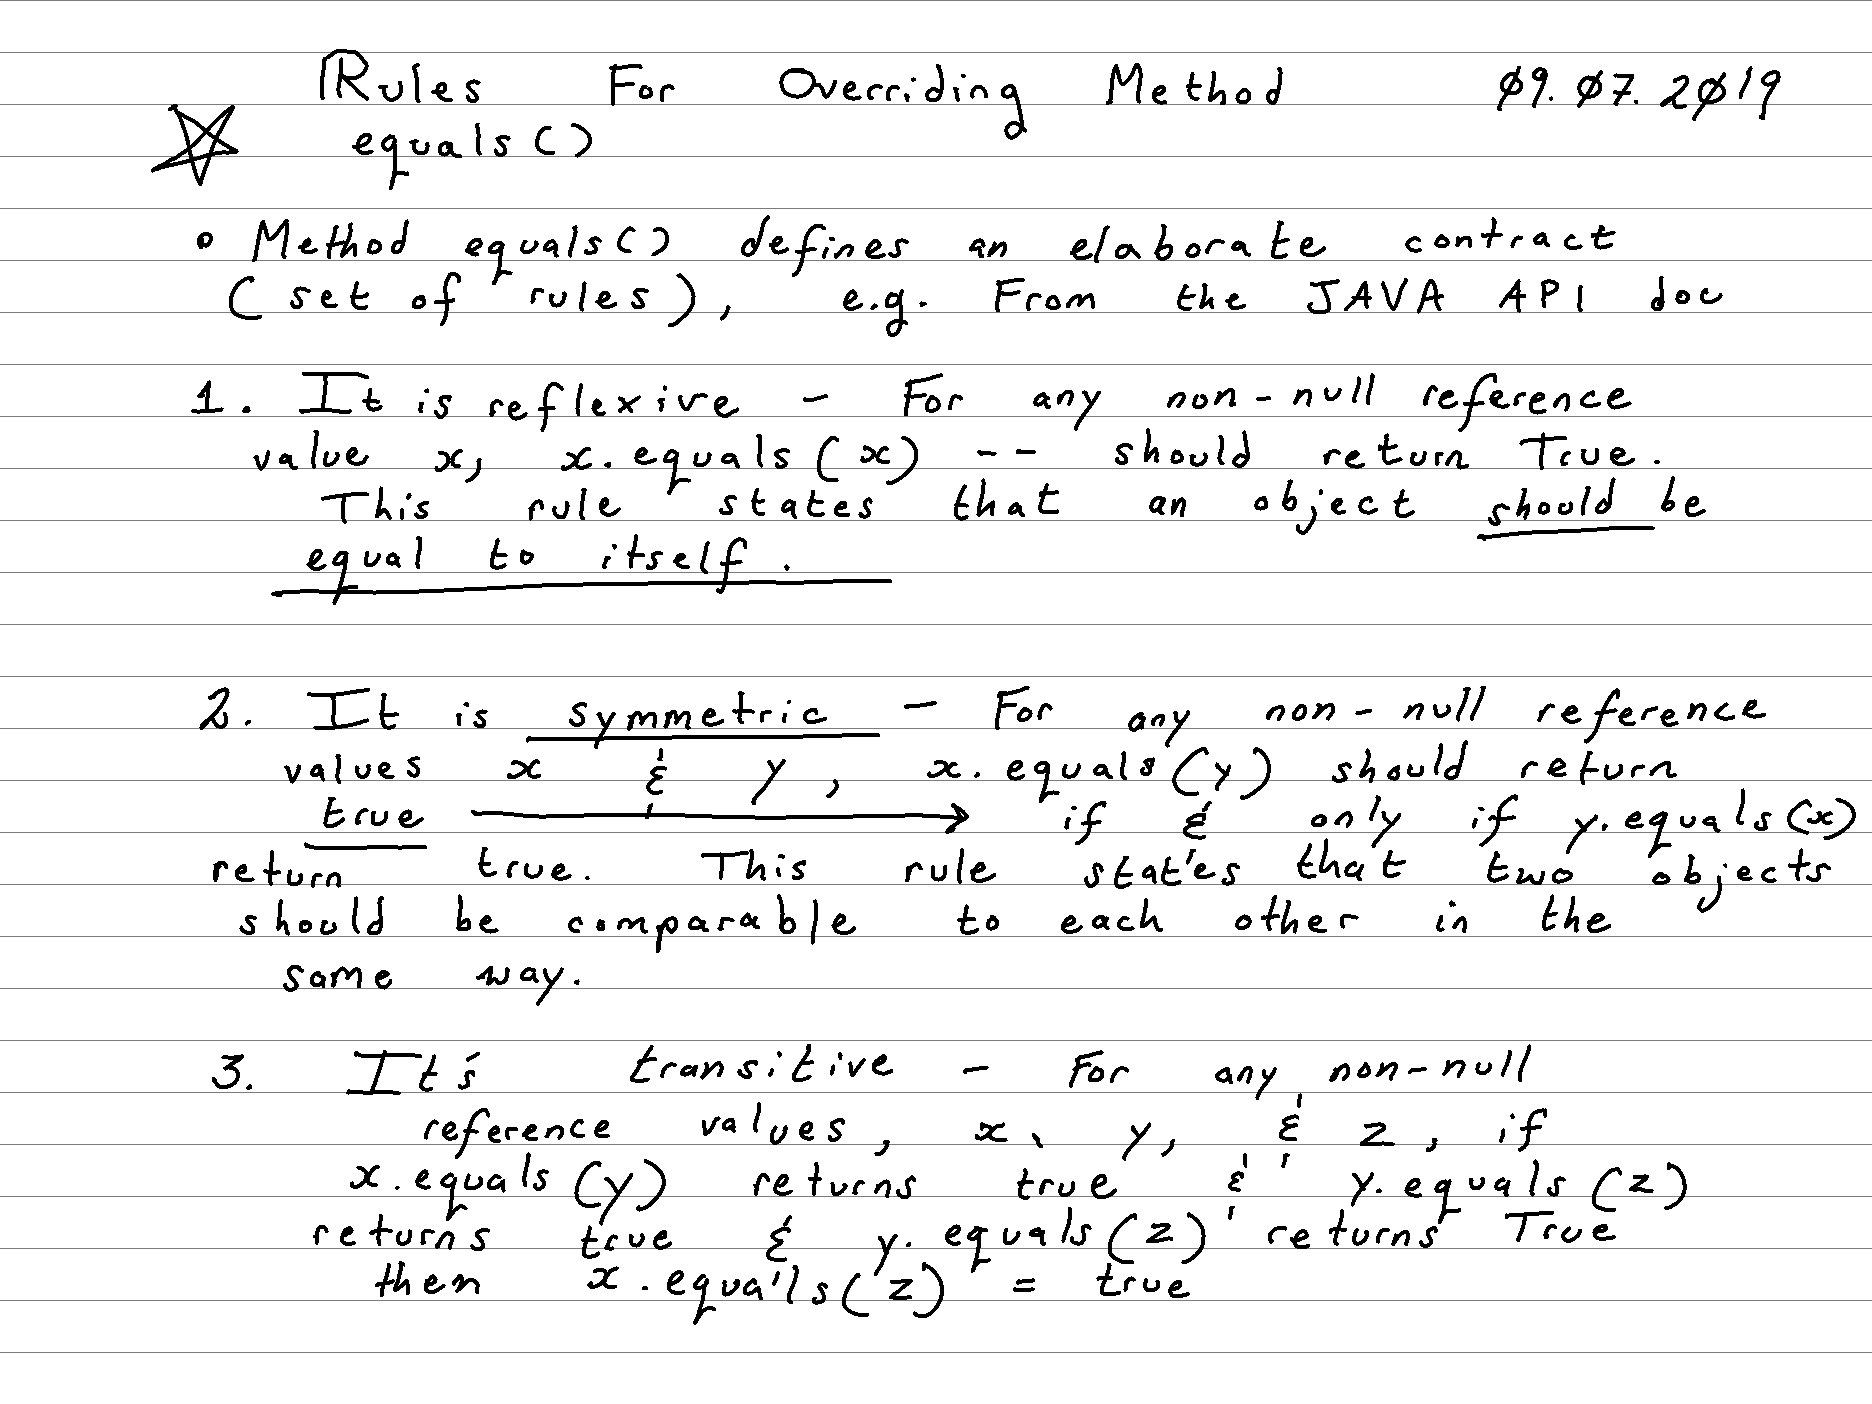 Rules For Overriding Method 09.07.2019
equals()
• Method equals() defines an elaborate contract
(set of rules), e.g. From the JAVA API doc
1. It is reflexive - For any non-null reference
value x, x.equals(x) -- should return True.
This rule states that an object should be
equal to itself.
2. It is symmetric - For any non-null reference
values x & y, x.equals(y) should return
true → if & only if y.equals(x)
return true. This rule states that two objects
should be comparable to each other in the
same way.
3. It's transitive - For any non-null
reference values, x, y, & z, if
x.equals(y) returns true & y.equals(z)
returns true & y.equals(z) returns True
then x.equals(z) = true